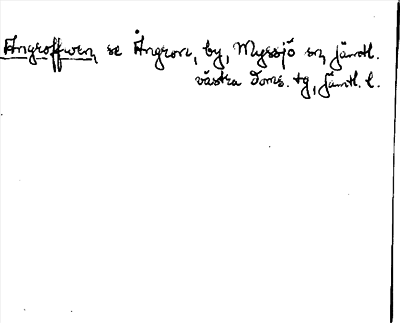 Ångroffwen, se Ångron, by, Myssjö sn, Jämtl.
västra doms. tg, Jämtl. l.